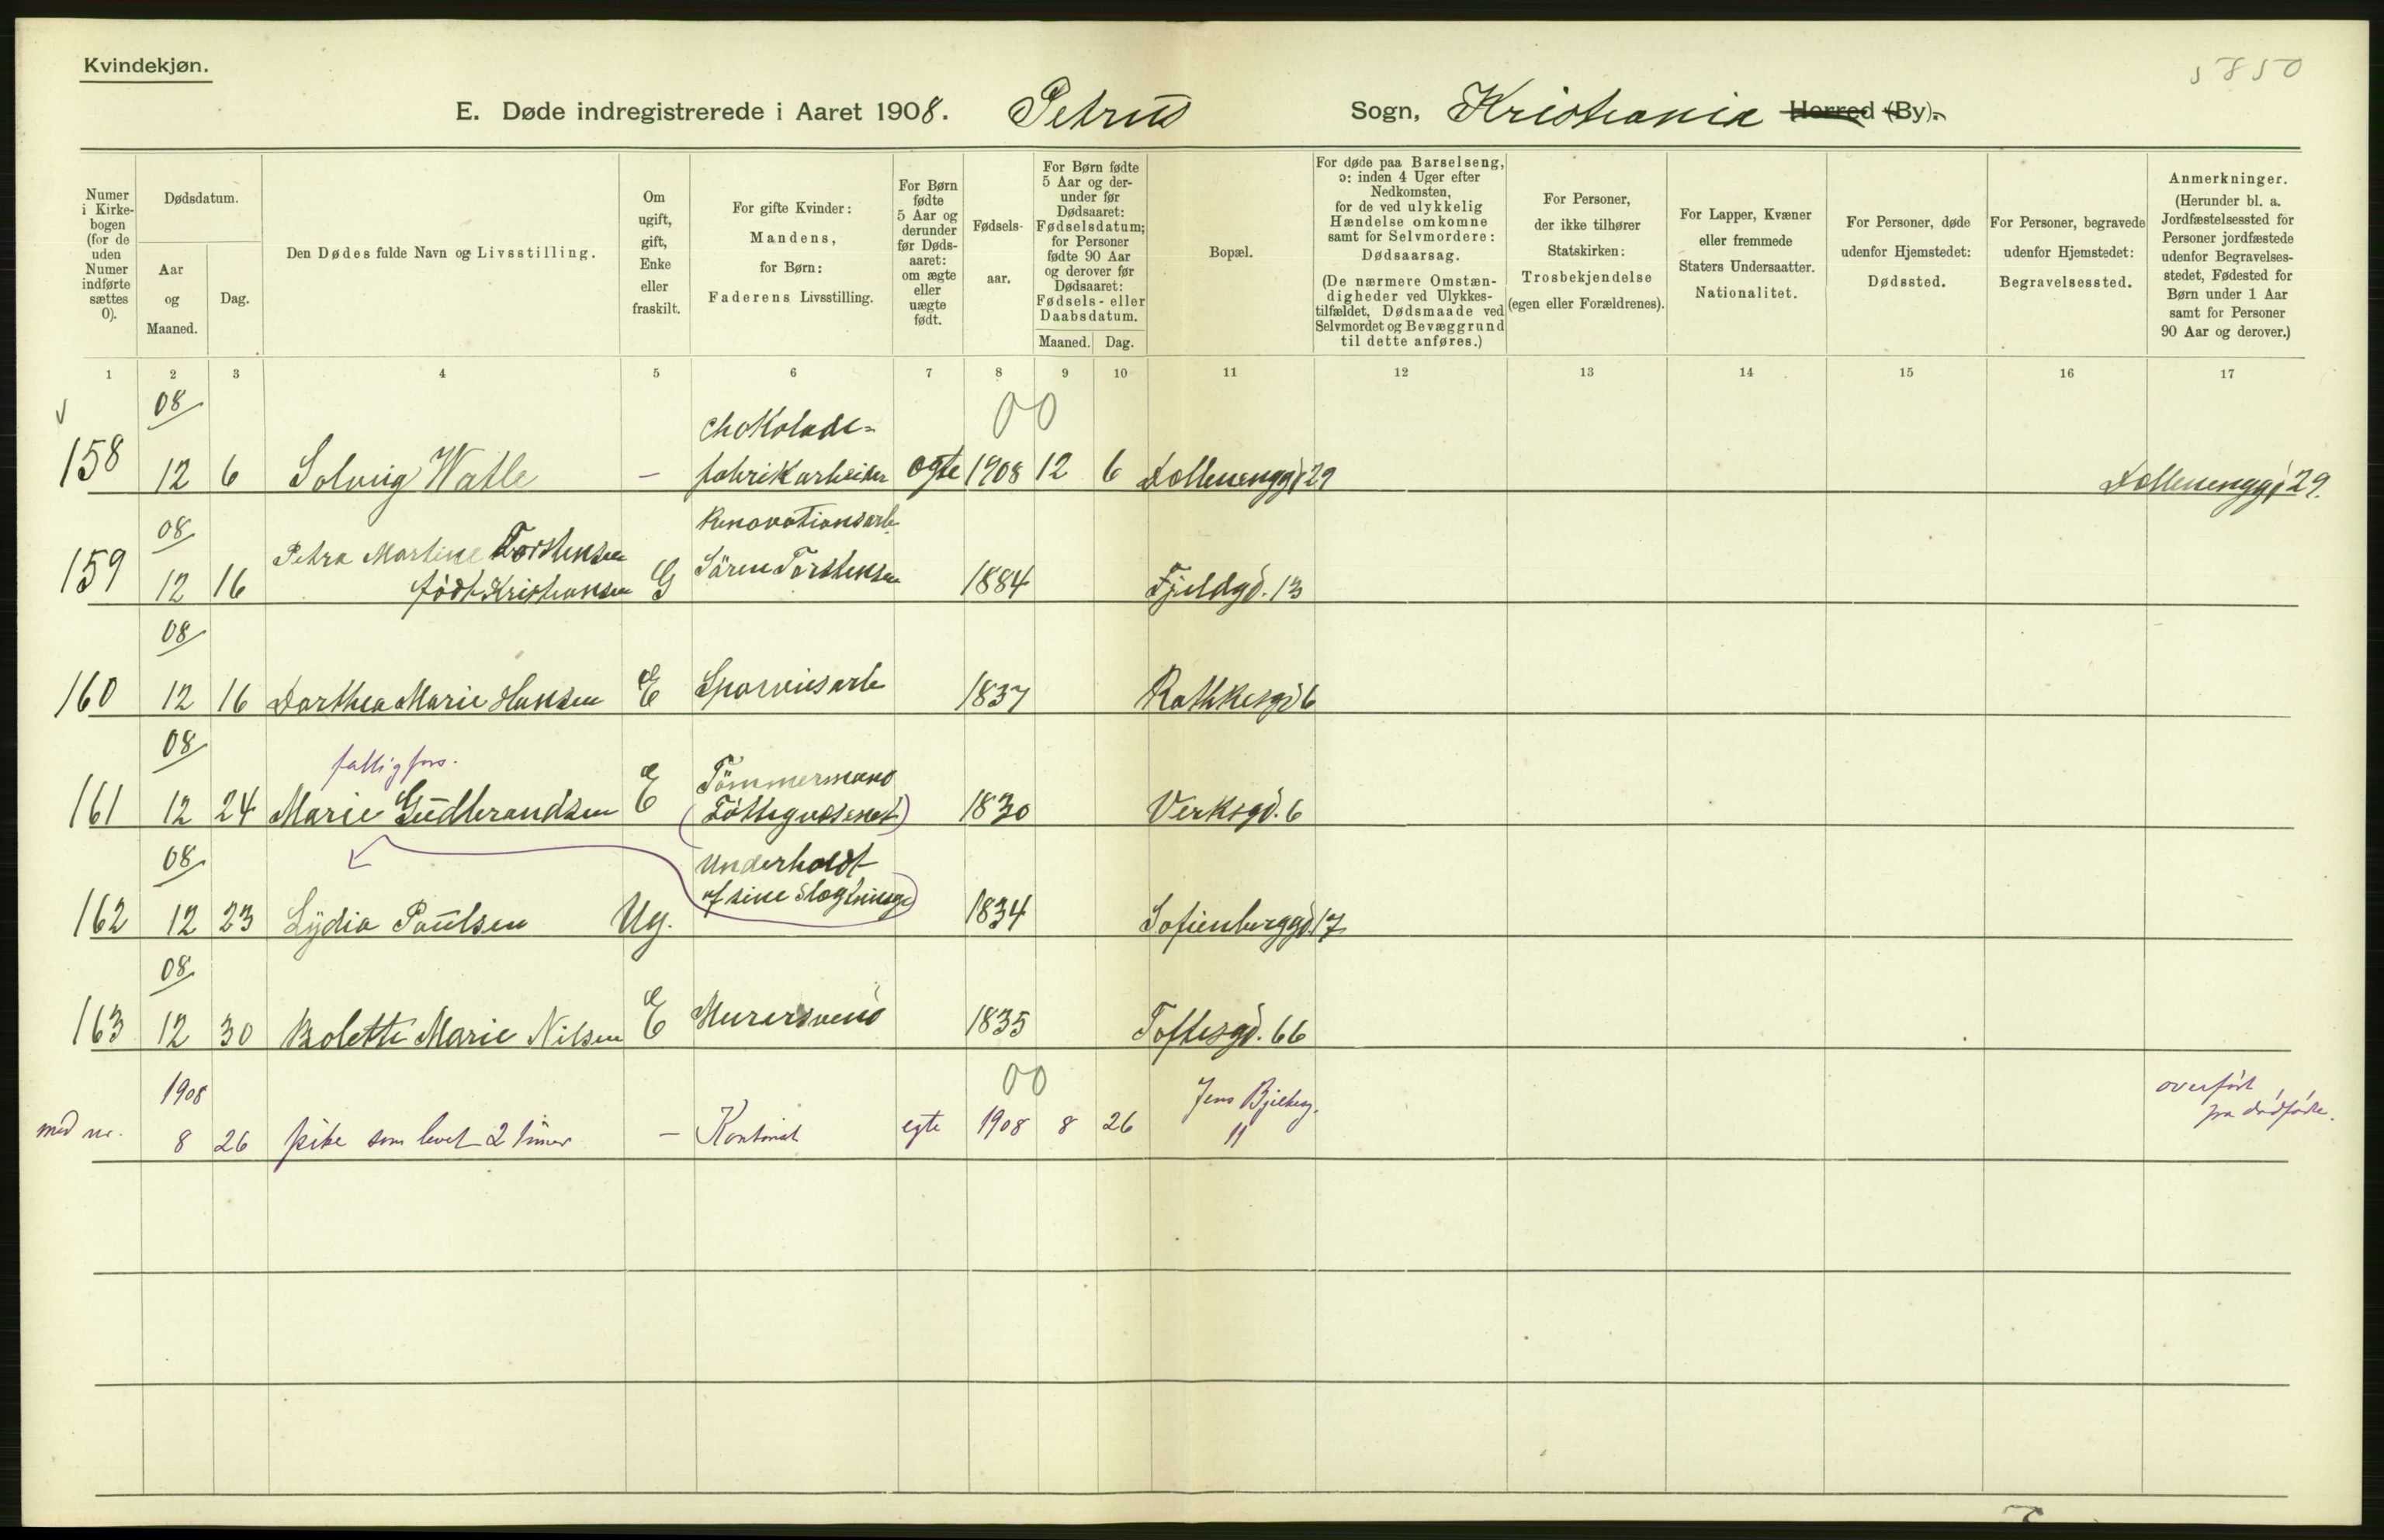 Kvindekjøn.
5850
E. Døde indregistrerede i Aaret 1908. Petrus Sogn, Kristiania Herred (By).
Numer i Kirkebogen (for de uden Numer indførte sættes 0).
Dødsdatum.
Aar og Maaned.
Dag.
Den Dødes fulde Navn og Livsstilling.
Om ugift, gift, Enke eller fraskilt.
For gifte Kvinder: Mandens, for Børn: Faderens Livsstilling.
For Børn fødte 5 Aar og derunder før Dødsaaret: om ægte eller uægte født.
Fødselsaar.
For Børn fødte 5 Aar og derunder før Dødsaaret: Fødselsdatum; for Personer fødte 90 Aar og derover før Dødsaaret: Fødsels- eller Daabsdatum.
Maaned. Dag.
Bopæl.
For døde paa Barselseng, ɔ: inden 4 Uger efter Nedkomsten, for de ved ulykkelig Hændelse omkomne samt for Selvmordere: Dødsaarsag.
(De nærmere Omstændigheder ved Ulykkestilfældet, Dødsmaade ved Selvmordet og Bevæggrund til dette anføres.)
For Personer, der ikke tilhører Statskirken: Trosbekjendelse (egen eller Forældrenes).
For Lapper, Kvæner eller fremmede Staters Undersaatter. Nationalitet.
For Personer, døde udenfor Hjemstedet: Dødssted.
For Personer, begravede udenfor Hjemstedet: Begravelsessted.
Anmerkninger. (Herunder bl. a. Jordfæstelsessted for Personer jordfæstede udenfor Begravelsesstedet, Fødested for Børn under 1 Aar samt for Personer 90 Aar og derover.)
1 2 3 4 5 6 7 8 9 10 11 12 13 14 15 16 17
08 chokolade= 00
158 12 6 Solveig Watle – fabrikarbeider ægte 1908 12 6 Dællenenggd 29 Dællenenggd 29.
08 Renovationsarb.
Petra Martine Torstensen Sören Torstensen
159 12 16 født Kristiansen G 1884 Fjeldgd. 13
08
160 12 16 Dorthea Marie Hansen E Sporveisarb 1837 Rathkesgd 6
08 fattigfors. Tömmermand
161 12 24 Marie Gudbrandsen E (Fattigvæsenet) 1830 Verksgd. 6
08 Underholdt
162 12 23 Lydia Paulsen Ug. af sine Slægtninge) 1834 Sofienberggd. 17
08
163 12 30 Bolette Marie Nilsen E Murersvend 1835 Toftesgd. 66
1908 00 Jens Bjelkesg. overført
med nr. 8 26 pike som levet 2 timer – Kontorist egte 1908 8 26 11 fra dødfødte.